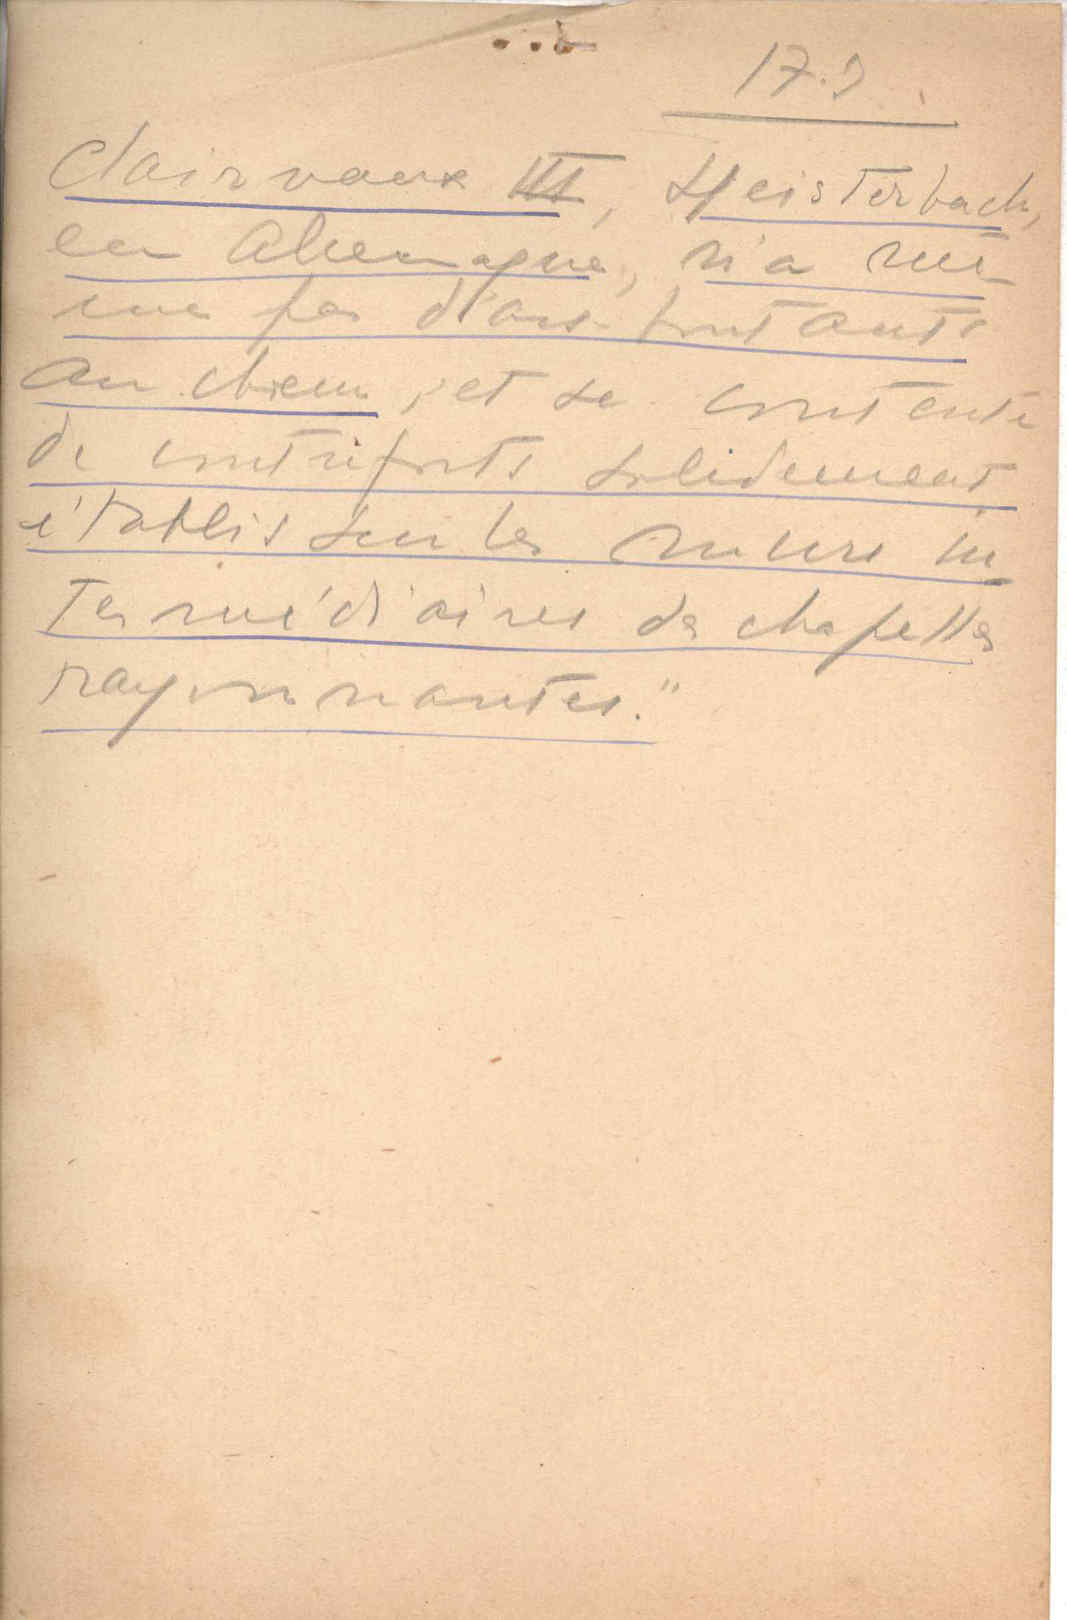 17.
Clairvaux III, Heisterbach,
en Allemagne, n'a mê-
me pas d'arcs-boutants
au chœur, et se contente
de contreforts solidement
établis sur les murs in
termédiaires des chapelles
rayonnantes."